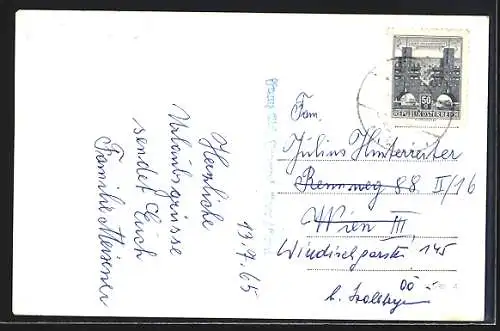 13.7.65
Herzliche
Urlaubsgrüsse
sendet Euch
Familie Meixner
50
REPUBLIK ÖSTERREICH
Fam.
Julius Hinterreiter
Rennweg 88 II/16
Wien III
Windischgarsten 145
OÖ